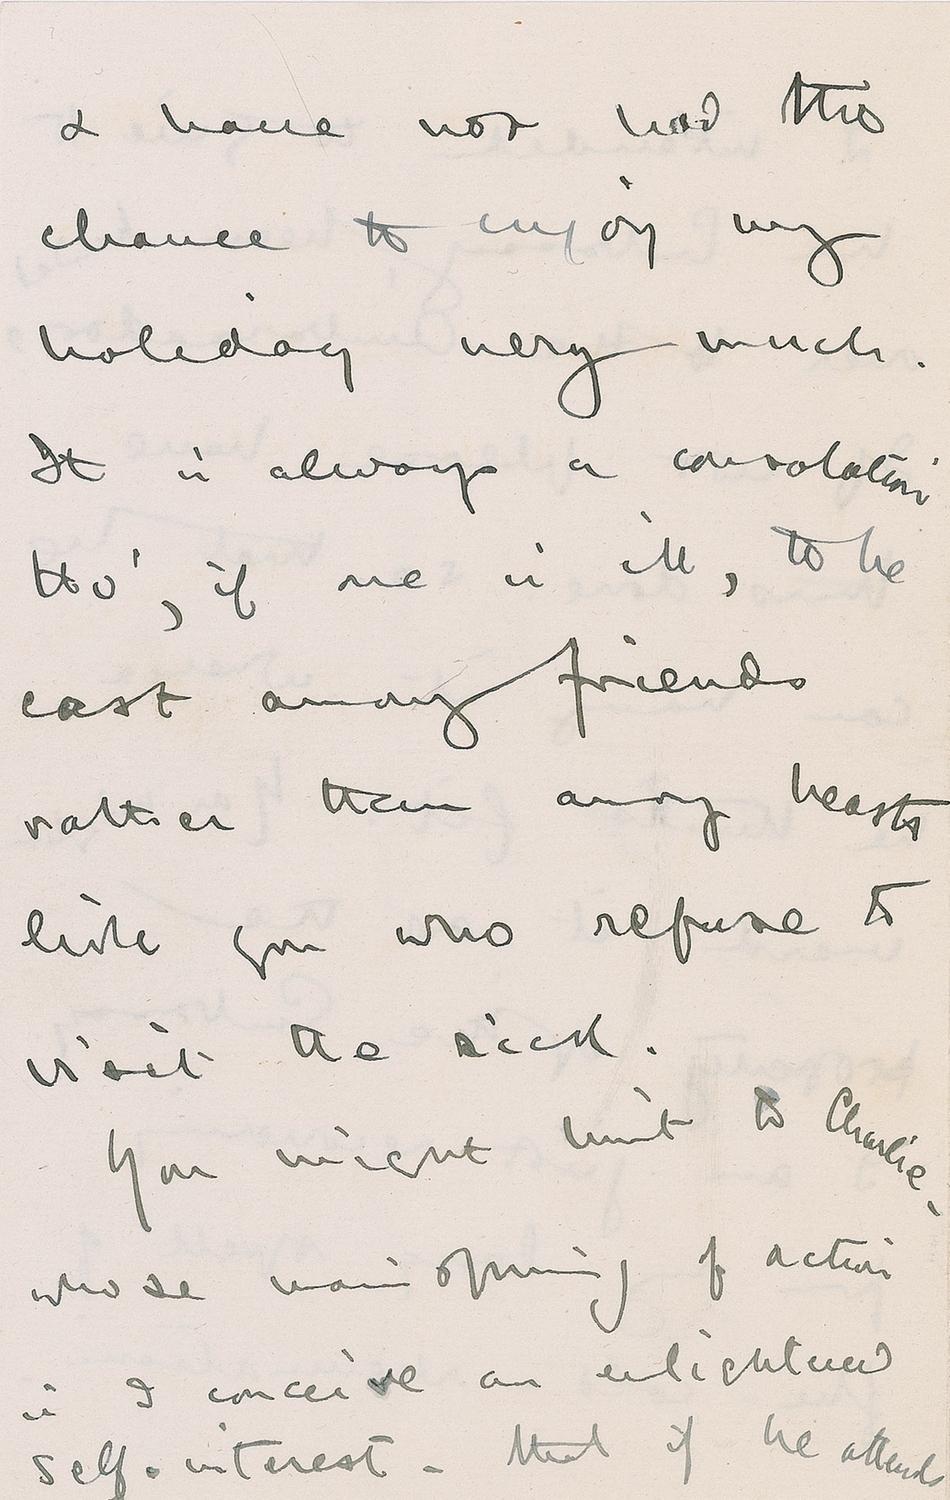 & have not had the
chance to enjoy my
holiday very much.
It is always a consolation
tho', if one is ill, to be
cast among friends
rather than among beasts
like you who refuse to
visit the sick.
You might hint to Charlie,
whose mainspring of action
is I conceive an enlightened
self-interest - that if he attends